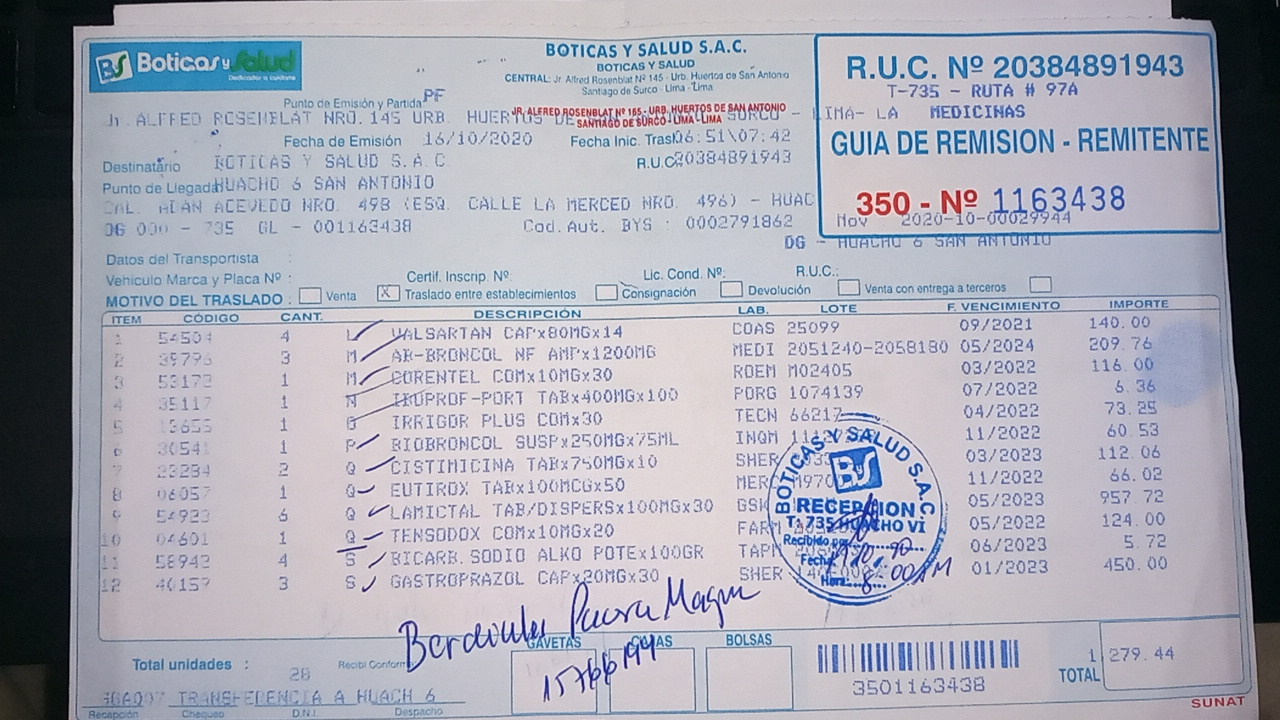 Boticas y Salud
BOTICAS Y SALUD S.A.C.
BOTICAS Y SALUD
CENTRAL: Jr. Alfred Rosenblat Nº 145 - Urb. Huertos de San Antonio
Santiago de Surco - Lima - Lima
R.U.C. Nº 20384891943
T-735 - RUTA # 97A
MEDICINAS
GUIA DE REMISION - REMITENTE
350 - Nº 1163438
Mov 2020-10-00029944
Punto de Emisión y Partida: PF
JR. ALFRED ROSENBLAT Nº 165 - URB. HUERTOS DE SAN ANTONIO
SANTIAGO DE SURCO - LIMA - LIMA
Jr. ALFRED ROSENBLAT NRO. 145 URB. HUERTOS DE SURCO - LIMA- LA
Fecha de Emisión 16/10/2020 Fecha Inic. Trasl 06:51\07:42
Destinatario BOTICAS Y SALUD S.A.C R.U.C 20384891943
Punto de Llegada HUACHO 6 SAN ANTONIO
CAL. ADAN ACEVEDO NRO. 498 (ESQ. CALLE LA MERCED NRO. 496) - HUAC
DG 000 - 735 GL - 001163438 Cod.Aut. BYS : 0002791862
DG - HUACHO 6 SAN ANTONIO
Datos del Transportista :
Vehiculo Marca y Placa Nº : Certif. Inscrip. Nº: Lic. Cond. Nº: R.U.C.:
MOTIVO DEL TRASLADO : Venta X Traslado entre establecimientos Consignación Devolución Venta con entrega a terceros
ITEM CÓDIGO CANT. DESCRIPCIÓN LAB. LOTE F. VENCIMIENTO IMPORTE
1 54504 4 L VALSARTAN CAPx80MGx14 COAS 25099 09/2021 140.00
2 39796 3 M AB-BRONCOL NF AMPx1200MG MEDI 2051240-2058180 05/2024 209.76
3 53173 1 M CORENTEL COMx10MGx30 ROEM M02405 03/2022 116.00
4 35117 1 N IBUPROF-PORT TABx400MGx100 PORG 1074139 07/2022 6.36
5 13655 1 IRRIGOR PLUS COMx30 TECN 66217 04/2022 73.25
6 30541 1 P BIOBRONCOL SUSPx250MGx75ML INQM 11/2022 60.53
7 23284 2 Q CISTIMICINA TABx750MGx10 SHER 03/2023 112.06
8 06057 1 Q EUTIROX TABx100MCGx50 MERC 11/2022 66.02
9 54923 6 Q LAMICTAL TAB/DISPERSx100MGx30 GSK 05/2023 957.72
10 04601 1 Q TENSODOX COMx10MGx20 FARM 05/2022 124.00
11 58942 4 S BICARB.SODIO ALKO POTEx100GR TAPM 06/2023 5.72
12 40157 3 S GASTROPRAZOL CAPx20MGx30 SHER 01/2023 450.00
BOTICAS Y SALUD S.A.C
BS
RECEPCION
T-735 HUACHO VI
Recibido por
Fecha
Hora: 8:00AM
GAVETAS GUIAS BOLSAS
Total unidades : 28 Recibí Conforme
3501163438
TOTAL 1,279.44
TRANSFERENCIA A HUACH 6
Recepción Chequeo D.N.I. Despacho
SUNAT